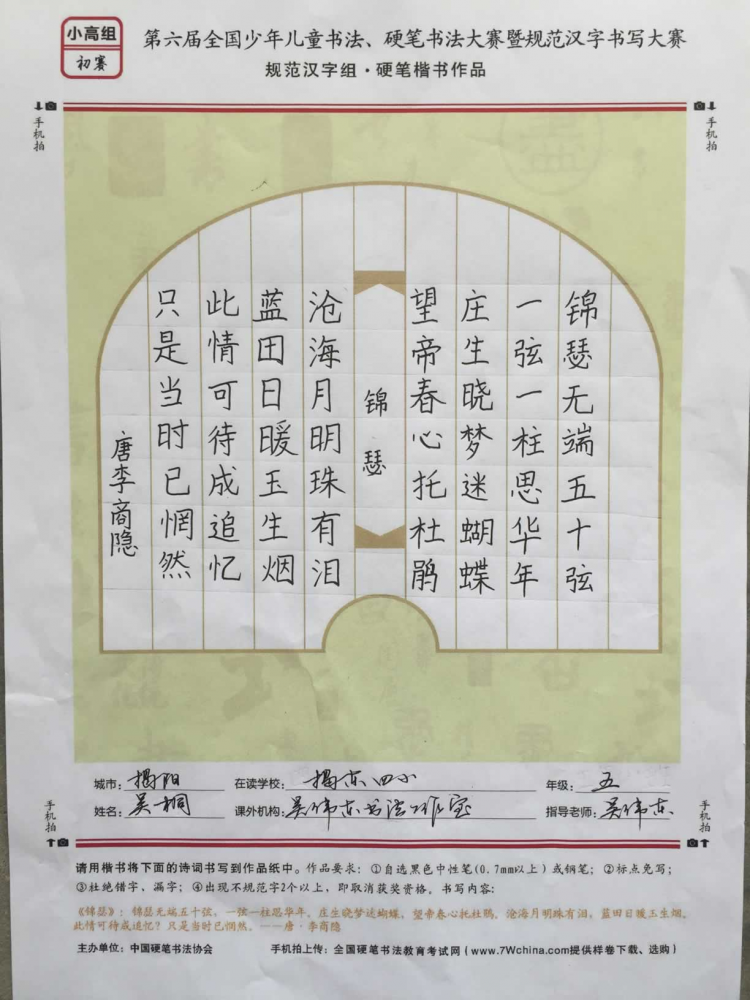 小高组
初赛
第六届全国少年儿童书法、硬笔书法大赛暨规范汉字书写大赛
规范汉字组·硬笔楷书作品
手机拍
手机拍
锦瑟无端五十弦
一弦一柱思华年
庄生晓梦迷蝴蝶
望帝春心托杜鹃
锦瑟
沧海月明珠有泪
蓝田日暖玉生烟
此情可待成追忆
只是当时已惘然
唐李商隐
城市：揭阳 在读学校：揭东四小 年级：五
姓名：吴桐 课外机构：吴伟东书法工作室 指导老师：吴伟东
手机拍
手机拍
请用楷书将下面的诗词书写到作品纸中。作品要求：①自选黑色中性笔(0.7mm以上)或钢笔；②标点免写；
③杜绝错字、漏字；④出现不规范字2个以上，即取消获奖资格。书写内容：
《锦瑟》：锦瑟无端五十弦，一弦一柱思华年。庄生晓梦迷蝴蝶，望帝春心托杜鹃。沧海月明珠有泪，蓝田日暖玉生烟。
此情可待成追忆？只是当时已惘然。——唐·李商隐
主办单位：中国硬笔书法协会 手机拍上传：全国硬笔书法教育考试网（www.7Wchina.com提供样卷下载、选购）